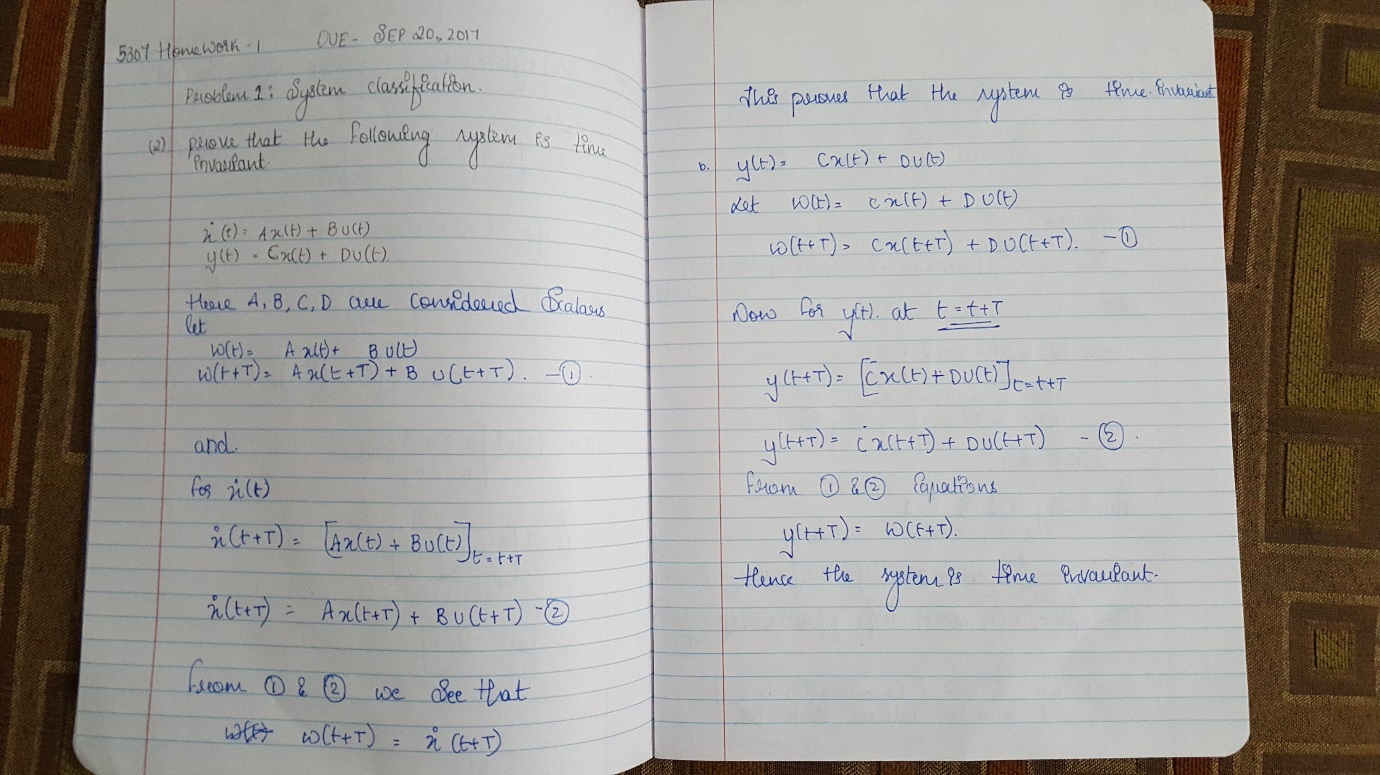 5307 Homework-1 DUE- SEP 20, 2017
Problem 1: System classification.
(a) prove that the following system is time
invariant.
ẋ(t) = Ax(t) + BU(t)
y(t) = Cx(t) + DU(t)
Here A, B, C, D are considered Scalars
let
W(t) = A x(t) + B U(t)
W(t+T) = A x(t+T) + B U(t+T). -①.
and.
for ẋ(t)
ẋ(t+T) = [Ax(t) + BU(t)]t=t+T
ẋ(t+T) = Ax(t+T) + BU(t+T) -②
From ① & ② we See that
W(t) W(t+T) = ẋ(t+T)
This proves that the system is time.invariant
b. y(t) = Cx(t) + DU(t)
Let W(t) = Cx(t) + DU(t)
W(t+T) = Cx(t+T) + DU(t+T). -①
Now for y(t). at t=t+T
y(t+T) = [Cx(t) + DU(t)]t=t+T
y(t+T) = Cx(t+T) + DU(t+T) -②.
From ① & ② Equations
y(t+T) = W(t+T).
Hence the system is time invariant.